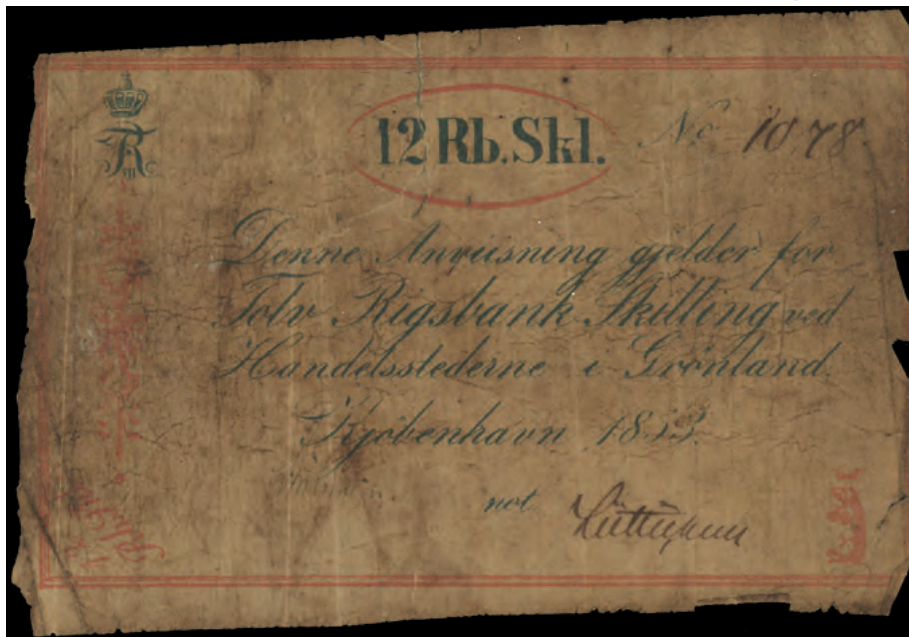 12 Rb. Skl.
No 1078
FR
VII
Denne Anviisning gjelder for
Tolv Rigsbank Skilling ved
Handelsstederne i Grönland.
Kjöbenhavn 1853.
not